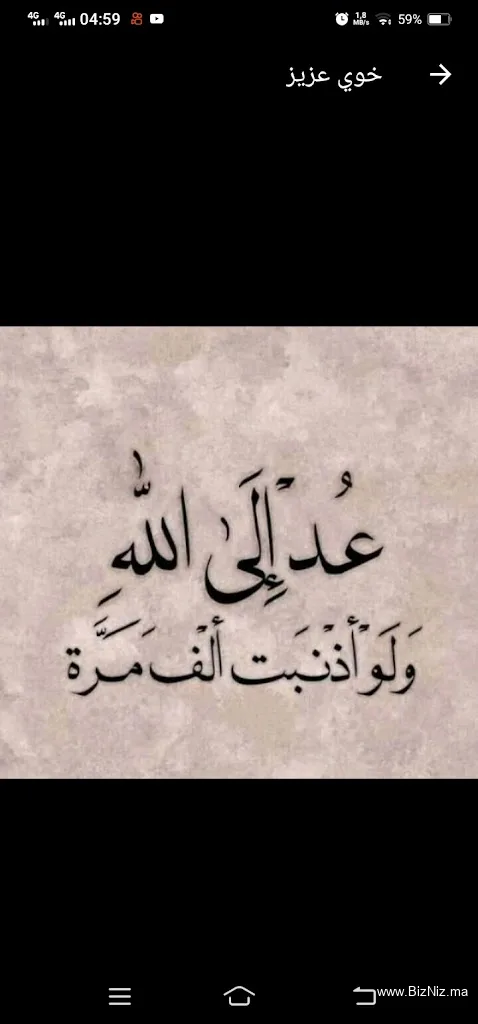 4G 4G 04:59 1,8 MB/s 59%
خوي عزيز
عُدْ إِلَىٰ اللَّهِ
وَلَوْ أَذْنَبَت أَلْف مَرَّة
www.BizNiz.ma